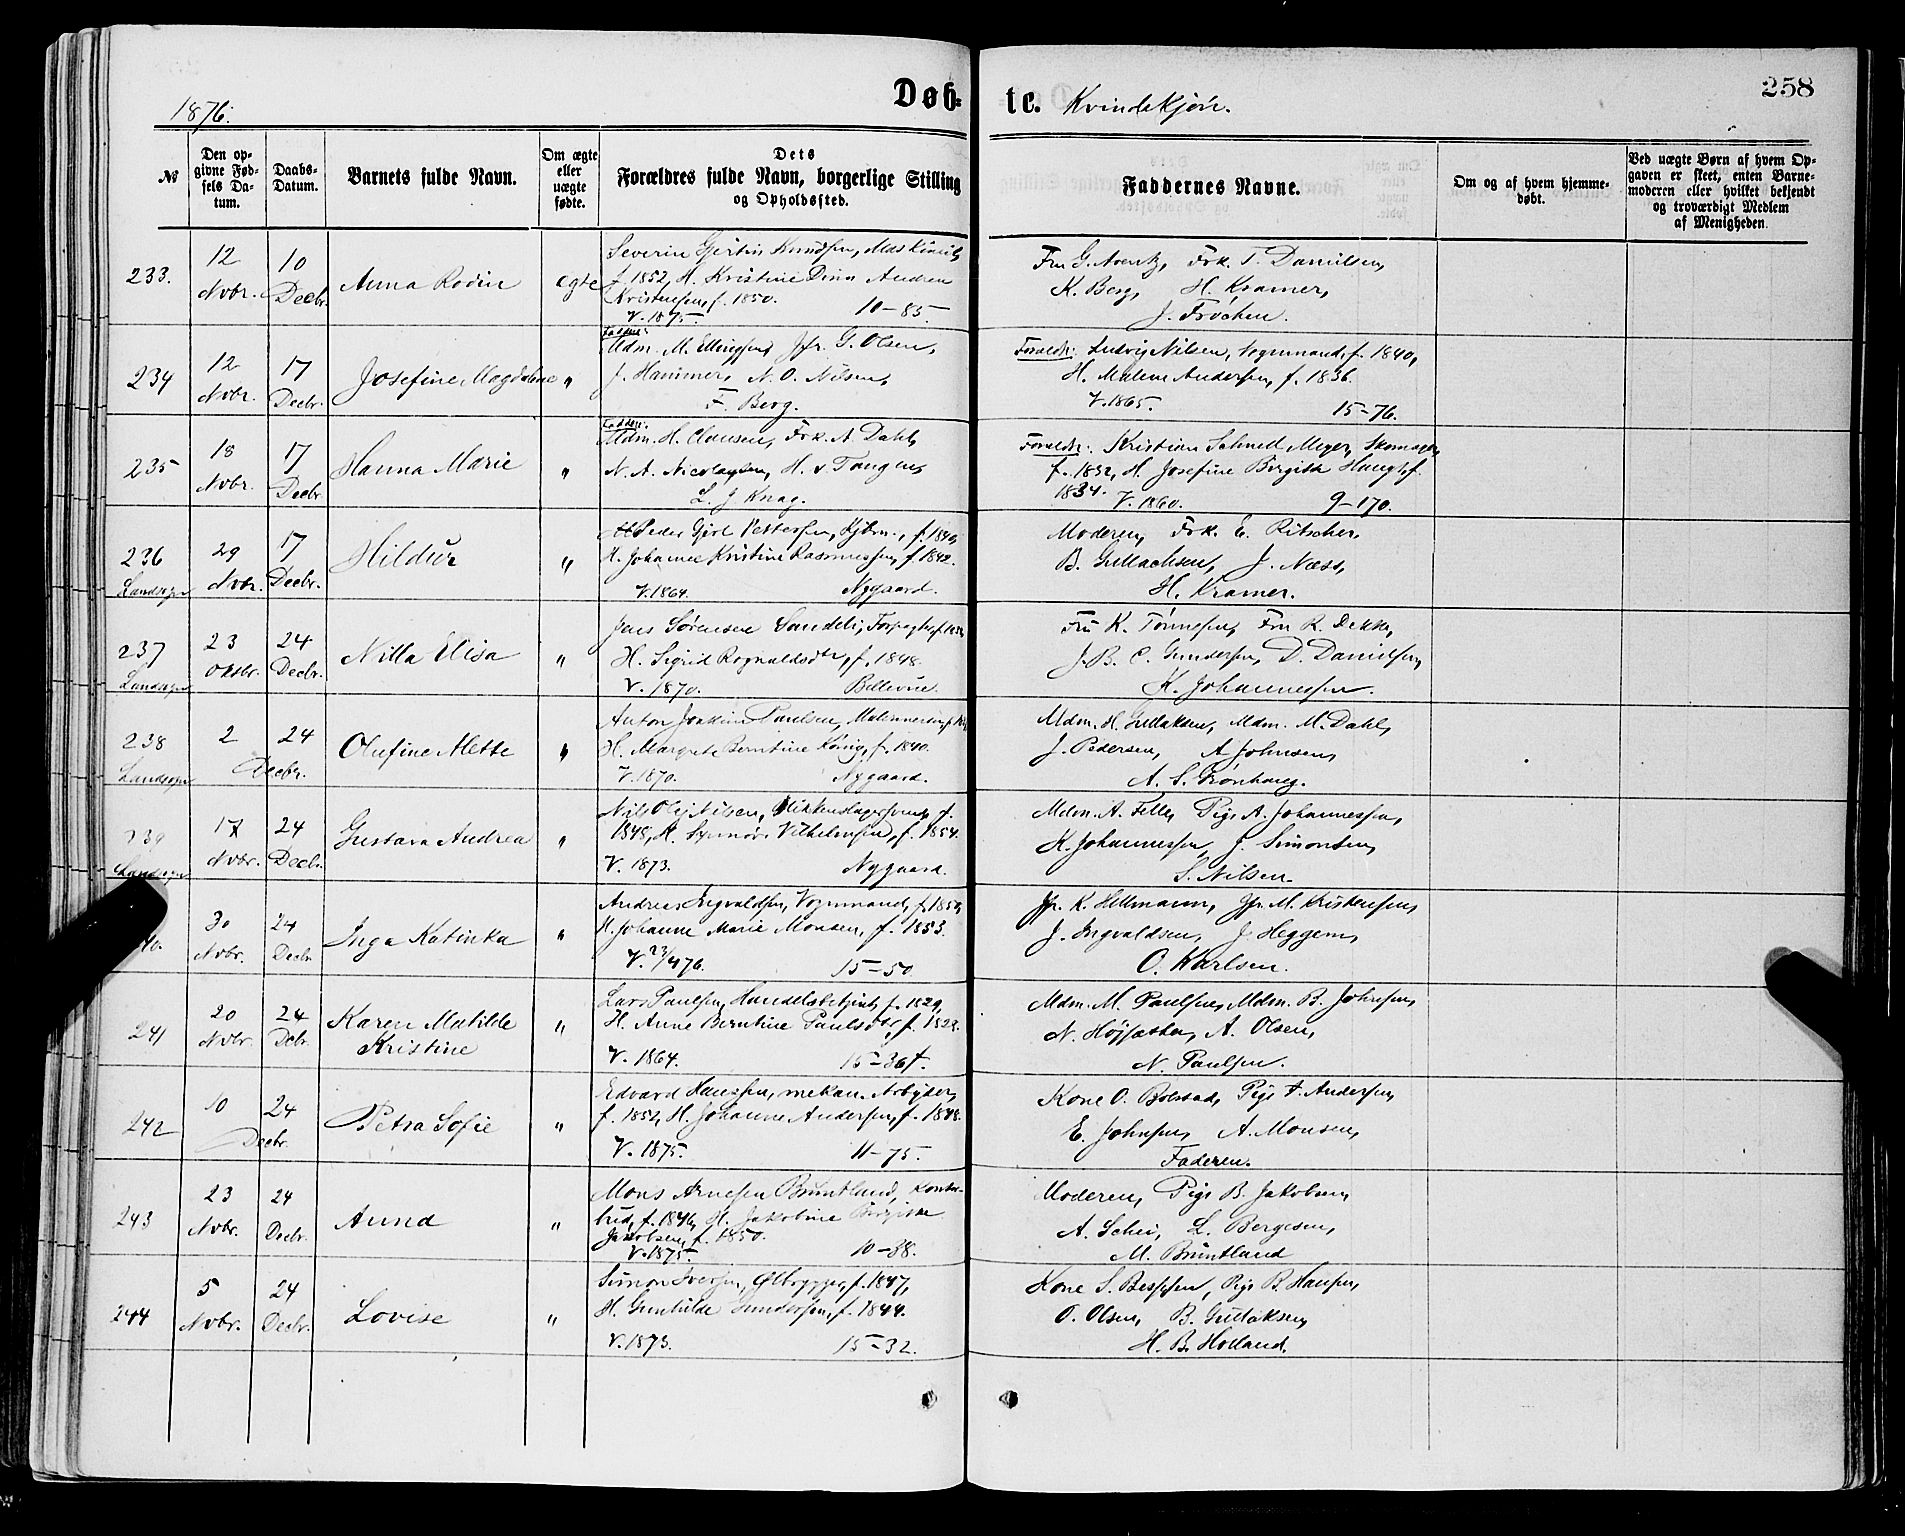 258
Døb-
te. Kvindekjøn.
1876.
№
Den op-
givne Fød-
sels Da-
tum.
Daabs-
Datum.
Barnets fulde Navn.
Om ægte
eller
uægte
fødte.
Dets
Forældres fulde Navn, borgerlige Stilling
og Opholdssted.
Faddernes Navne.
Om og af hvem hjemme-
døbt.
Ved uægte Børn af hvem Op-
gaven er skeet, enten Barne-
moderen eller hvilket bekjendt
og troværdigt Medlem
af Menigheden.
233.
12
Novbr.
10
Decbr.
Anna Rodin
ægte
Severin Gjertin Knudsen,
f. 1852, H. Kristine Dina Andrea
Kristensen, f. 1850.
V. 1875. 10-85.
Fru G. Arentz, Frk. T. Danielsen,
K. Berg, H. Kramer,
J. Frøchen.
234
12
Novbr.
17
Decbr.
Josefine Magdalene
"
Faddere:
Mdm. M. Ellingsen, Jfr. G. Olsen,
J. Hammer, N. O. Nilsen,
F. Berg.
Foreldr: Ludvig Nilsen, Vognmand, f. 1840,
H. Malene Andersen, f. 1836.
V. 1865. 15-76.
235
18
Novbr.
17
Decbr.
Hanna Marie
"
Faddere:
Mdm. H. Clausen, Frk. A. Dahl,
N. A. Nicolaysen, H. v. Tangen,
L. J. Knag.
Foreldr: Kristian Schmell Meyer, Skomager,
f. 1832, H. Josefine Birgith Haugs, f.
1834. V. 1860. 9-170.
236
Landsogn
29
Novbr.
17
Decbr.
Hildur
"
Peder Gjert Pettersen, f. 1840,
H. Johanne Kristine Rasmussen, f. 1842.
V. 1864. Nygaard.
Moderen, Frk. E. Ritscher,
B. Gullachsen, J. Næss,
H. Kramer.
237
Landsogn
23
Oktbr.
24
Decbr.
Nilla Elisa
"
Jens Sørensen Sandeli, Forpagter,
H. Sigrid Rognaldsdtr, f. 1848.
V. 1870. Bellevue.
Fru K. Tønnesen, Fru R. Dekke,
J. B. C. Gundersen, D. Danielsen,
K. Johannessen.
238
Landsogn
2
24
Decbr.
Olufine Mette
"
Anton Joakim Paulsen,
H. Margrete Berntine König, f. 1840.
V. 1870. Nygaard.
Mdm. H. Gullaksen, Mdm. M. Dahl,
J. Pedersen, A. Johnsen,
A. S. Grönhaug.
239
Landsogn
17
Novbr.
24
Decbr.
Gustava Andrea
"
Nils Olej Nilsen, Blikkenslagersvend, f.
1848, H. Vilhelmsen, f. 1854.
V. 1873. Nygaard.
Mdm. A. Felle, Pige A. Johannessen,
K. Johannessen, J. Simonsen,
S. Nilsen.
30
Novbr.
24
Decbr.
Inga Katinka
"
Andreas Ingvaldsen, Vognmand, f. 1850,
H. Johanne Marie Monsen, f. 1853.
V. 23/4 76. 15-50
Jfr. K. Hellmann, Jfr. M. Kristensen,
J. Ingvaldsen, J. Heggem,
O. Karlsen.
241
20
Novbr.
24
Dcbr.
Karen Matilde
Kristine
"
Lars Paulsen, Handelsbetjent, f. 1829,
H. Anne Berntine Paulsdtr, f. 1828.
V. 1864. 15-36 f.
Mdm. M. Paulsen, Mdm. B. Johnsen,
N. Højsæter, A. Olsen,
N. Paulsen.
242
10
24
Decbr.
Petra Sofie
"
Edvard Hanssen, mekan. Arbejder,
f. 1851, H. Johanne Andersen, f. 1848.
V. 1875. 11-75.
Kone O. Bolstad, Pige A. Andersen,
E. Johnsen, A. Monsen,
Faderen.
243
23
Novbr.
24
Decbr.
Aund
"
Mons Arnesen Bruntland,
f. 1846, H. Jakobine Birgitte
Jakobsen, f. 1850.
V. 1875. 10-38.
Moderen, Pige B. Jakobsen,
A. Schei, L. Bergesen,
M. Bruntland
244
5
Novbr.
24
Decbr.
Lovise
"
Simon Iversen, Ølbrygger, f. 1847,
H. Gunhilde Gundersen, f. 1844.
V. 1873. 15-32.
Kone S. Bessesen, Pige B. Hansen,
O. Olsen, B. Gullaksen,
H. B. Holland.